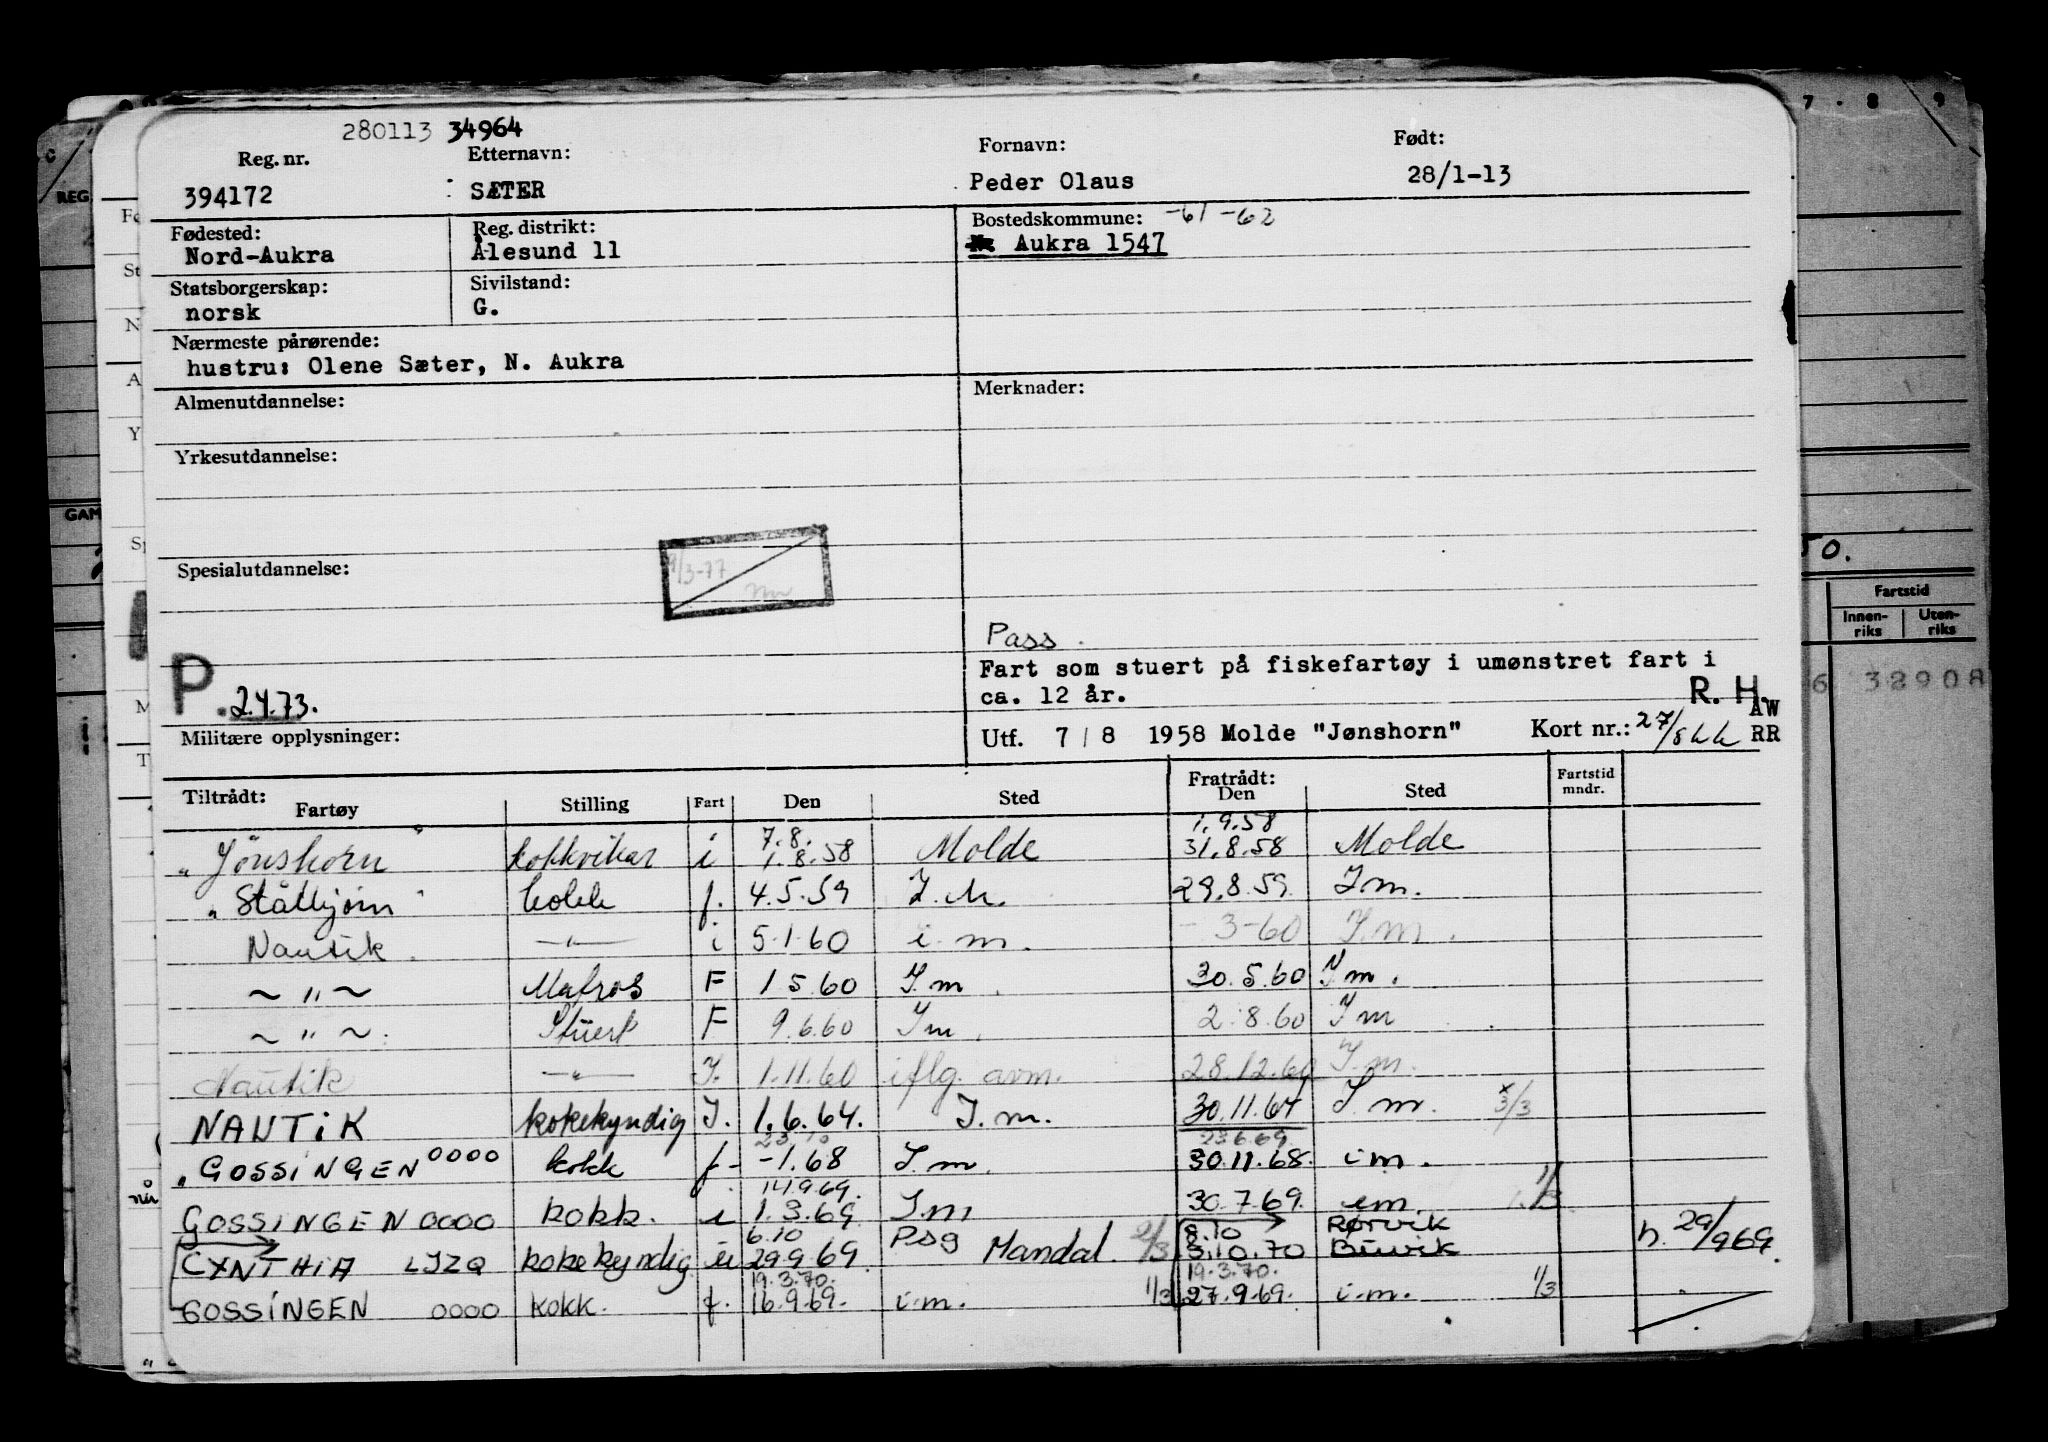 280113 34964
Reg. nr. Etternavn: Fornavn: Født:
394172 SÆTER Peder Olaus 28/1-13
Fødested: Reg. distrikt: Bostedskommune: -61 -62
Nord-Aukra Ålesund 11 Aukra 1547
Statsborgerskap: Sivilstand:
norsk G.
Nærmeste pårørende:
hustru: Olene Sæter, N. Aukra
Almenutdannelse: Merknader:
Yrkesutdannelse:
Spesialutdannelse:
Pass.
Fart som stuert på fiskefartøy i umønstret fart i
ca. 12 år.
R. H.
P. 2.4.73.
Militære opplysninger:
Utf. 7/8 1958 Molde "Jønshorn" Kort nr.: 27/8
AW
RR
Tiltrådt: Fratrådt: Fartstid mndr.
Fartøy Stilling Fart Den Sted Den Sted
7.8. 1.9.58
"Jønshorn" kokkvikar i 1.8.58 Molde 31.8.58 Molde
"Stålbjørn" kokk f. 4.5.59 I.M. 29.8.59. I.m.
Nautik. —"— i 5.1.60 i.m. - 3-60 I.m.
~ " ~ Matros F 1 5.60 I.m. 30.5.60 I.m.
~ " ~. Stuert F 9.6.60 I m. 2.8.60 I m
Nautik —"— I. 1.11.60 iflg. avm. 28.12.60 I.m.
NAUTIK kokekyndig I. 1.6.64. I.m. 30.11.64 I.m. 3/3
23.6.69.
"GOSSINGEN OOOO kokk f- -1.68 I.m. 30.11.68. i.m.
14.9.69.
GOSSINGEN OOOO kokk. i 1.3.69 I.m 30.7.69. i.m.
6.10 8.10 Rørvik
CYNTHIA LJZQ kokekyndig u 29.9.69. Psg Mandal. 2/3 3.10.70 h. 29/969.
19.3.70. 19.3.70.
GOSSINGEN OOOO kokk. f. 16.9.69. i.m. 1/3 27.9.69. i.m. 1/3
7 . 8 9
REG
GAM
50.
Fartstid
Innen-riks Uten-riks
6 32908